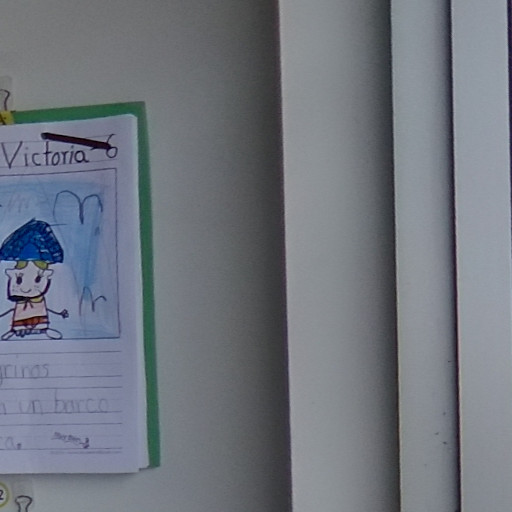 Victoria 6
grinos
un barco
ca.
2